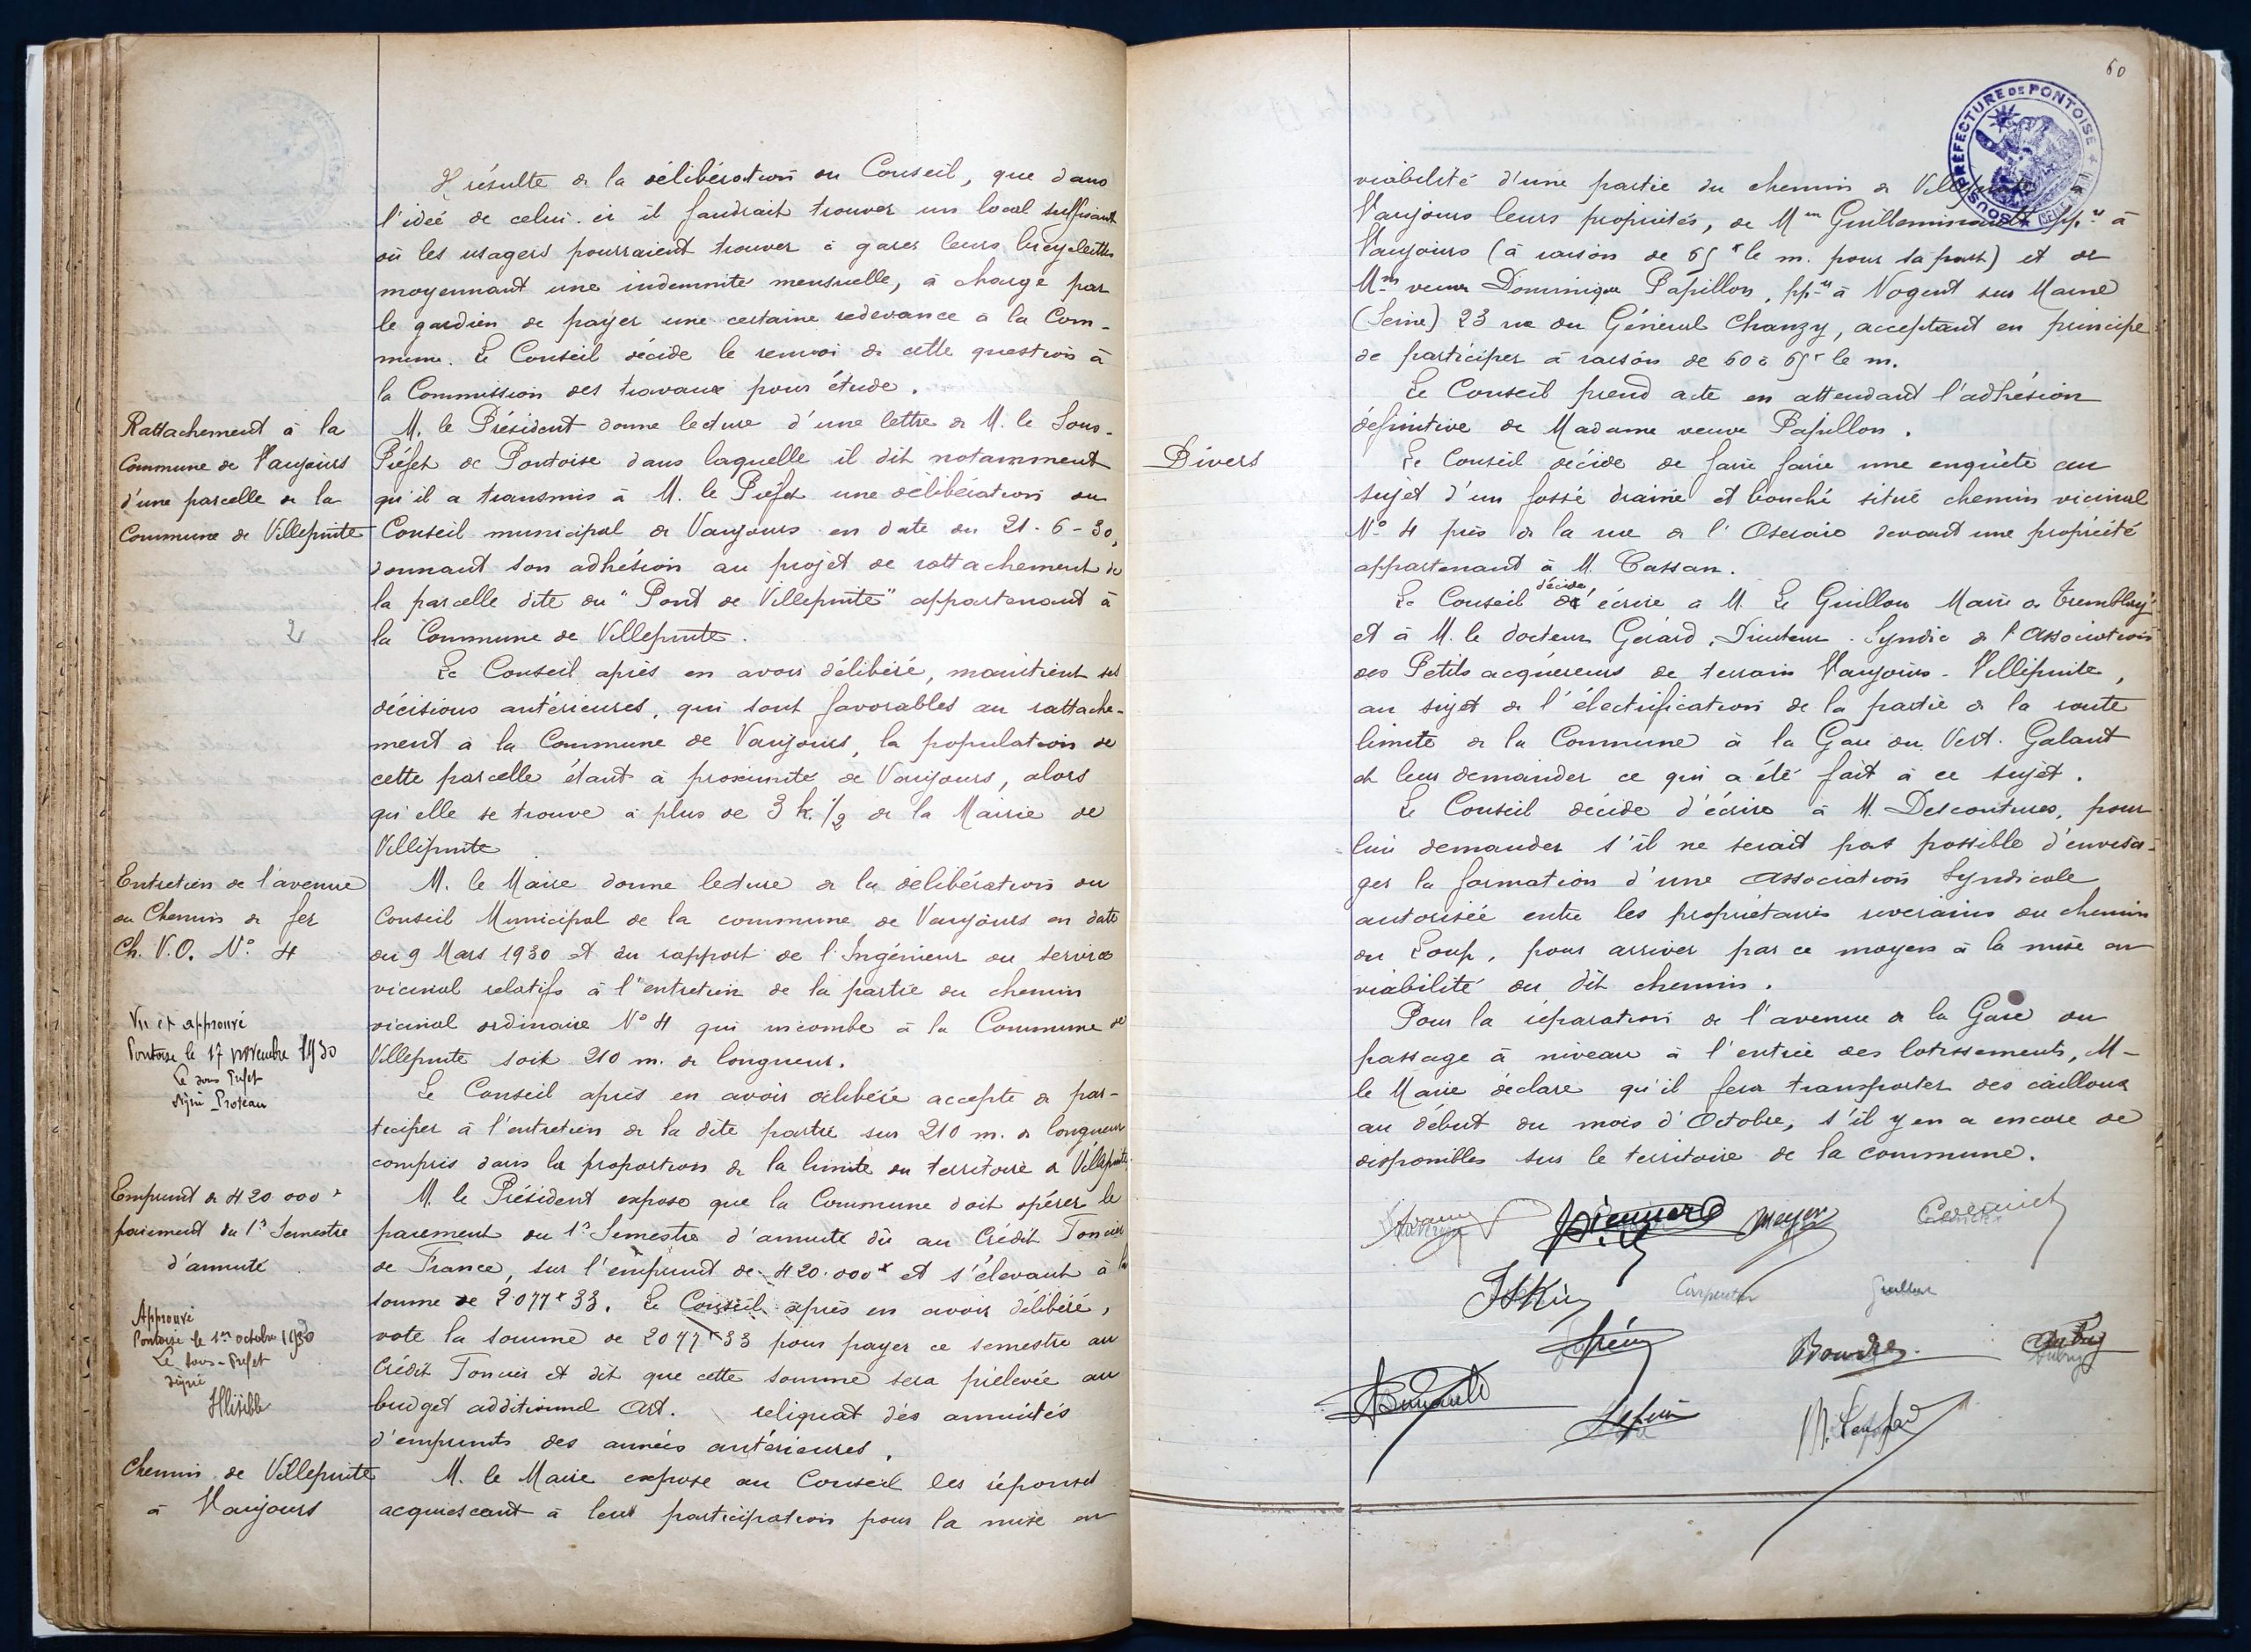 Il résulte de la délibération du Conseil, que dans
l'idée de celui-ci il faudrait trouver un local suffisant
où les usagers pourraient trouver à garer leurs bicyclettes
moyennant une indemnité mensuelle, à charge par
le gardien de payer une certaine redevance à la Com-
mune. Le Conseil décide le renvoi de cette question à
la Commission des travaux pour étude.
Rattachement à la
Commune de Vaujours
d'une parcelle de la
Commune de Villepinte
M. le Président donne lecture d'une lettre de M. le Sous-
Préfet de Pontoise dans laquelle il dit notamment
qu'il a transmis à M. le Préfet une délibération du
Conseil municipal de Vaujours en date du 21-6-30,
donnant son adhésion au projet de rattachement de
la parcelle dite du "Pont de Villepinte" appartenant à
la Commune de Villepinte.
2
Le Conseil après en avoir délibéré, maintient ses
décisions antérieures, qui sont favorables au rattache-
ment à la Commune de Vaujours, la population de
cette parcelle étant à proximité de Vaujours, alors
qu'elle se trouve à plus de 3 k. 1/2 de la Mairie de
Villepinte
Entretien de l'avenue
du Chemin de fer
Ch. V.O. N° 4
M. le Maire donne lecture de la délibération du
Conseil Municipal de la commune de Vaujours en date
du 9 Mars 1930 et du rapport de l'Ingénieur du service
vicinal relatifs à l'entretien de la partie du chemin
vicinal ordinaire N° 4 qui incombe à la Commune de
Villepinte soit 210 m. de longueur.
Vu et approuvé
Pontoise le 17 novembre 1930
Le sous Préfet
signé Proteau
Le Conseil après en avoir délibéré accepte de par-
ticiper à l'entretien de la dite partie sur 210 m. de longueur
compris dans la proportion de la limite du territoire de Villepinte.
Emprunt de 420 000 f
paiement du 1er Semestre
d'annuité
M. le Président expose que la Commune doit opérer le
paiement du 1er Semestre d'annuité dû au Crédit Foncier
de France, sur l'emprunt de 420.000 f et s'élevant à la
somme de 2077 f 33. Le Conseil après en avoir délibéré,
vote la somme de 2077 f 33 pour payer ce semestre au
Crédit Foncier et dit que cette somme sera prélevée au
budget additionnel Art. reliquat des annuités
d'emprunts des années antérieures.
Approuvé
Pontoise le 1er octobre 1930
Le Sous-Préfet
signé
Illisible
Chemin de Villepinte
à Vaujours
M. le Maire expose au Conseil les réponses
acquiescant à leur participation pour la mise en
60
SOUS-PRÉFECTURE DE PONTOISE
viabilité d'une partie du chemin de Villepinte
Vaujours leurs propriétés, de Mme Guilleminault pp.re à
Vaujours (à raison de 65 f le m. pour sa part) et de
Mme veuve Dominique Papillon, pp.re à Nogent sur Marne
(Seine) 23 rue du Général Chanzy, acceptant en principe
de participer à raison de 60 à 65 f le m.
Le Conseil prend acte en attendant l'adhésion
définitive de Madame veuve Papillon.
Divers
Le Conseil décide de faire faire une enquête au
sujet d'un fossé drainé et bouché situé chemin vicinal
N° 4 près de la rue de l'Oseraie devant une propriété
appartenant à M. Cassan.
Le Conseil décide d'écrire à M. Le Guillou Maire de Tremblay
et à M. le docteur Gérard, Directeur-Syndic de l'Association
des Petits acquéreurs de terrain Vaujours-Villepinte,
au sujet de l'électrification de la partie de la route
limite de la Commune à la Gare du Vert-Galant
et leur demander ce qui a été fait à ce sujet.
Le Conseil décide d'écrire à M. Descoutures, pour
lui demander s'il ne serait pas possible d'envisa-
ger la formation d'une Association Syndicale
autorisée entre les propriétaires riverains du chemin
du Loup, pour arriver par ce moyen à la mise en
viabilité du dit chemin.
Pour la réparation de l'avenue de la Gare au
passage à niveau à l'entrée des lotissements, M-
le Maire déclare qu'il fera transporter des cailloux
au début du mois d'Octobre, s'il y en a encore de
disponibles sur le territoire de la commune.
Meyer
Carpentier
Guillou
Aubry